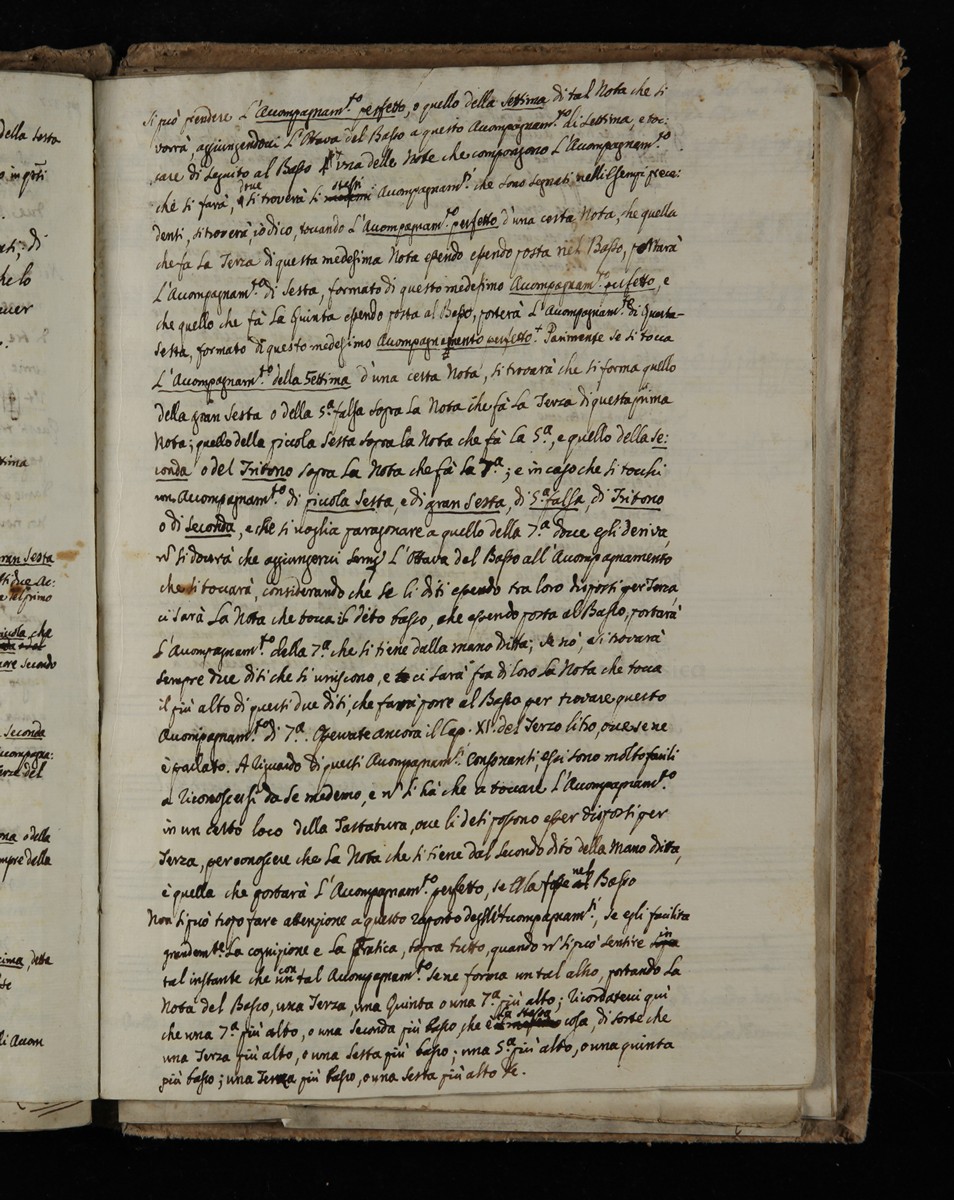 della sesta
si può prendere L'Accompagnam.to perfetto, o quello della settima di tal Nota che si
vorrà, aggiungendovi L'Ottava del Basso a questo Accompagnam.to di Settima, e toc:
care di seguito al Basso una delle Note che compongono L'Accompagnam.to
chè si farà, dove si troverà si stessi Accompagnam.ti che sono segnati nelli Esempi prece:
denti, si troverà, iò dico, toccando L'Accompagnam.to perfetto d'una certa Nota, che quella
che fa La Terza di questa medesima Nota essendo essendo posta nel Basso, portarà
L'Accompagnam.to di Sesta, formato di questo medesimo Accompagnam.to perfetto, e
che quello che fà La Quinta essendo posta al Basso, porterà L'Accompagnam.to di Quarta-
Sesta, formato di questo medesimo Accompagnamento perfetto + Parimente se si tocca
L'Accompagnam.to della Settima d'una certa Nota, si trovarà che si forma quello
della gran Sesta o della 5.a falsa sopra La Nota che fà La Terza di questa prima
Nota; quello della piccola Sesta sopra la Nota che fà La 5.a, e quello della Se:
conda o del Tritono sopra La Nota che fà La 7.a; e in caso che si tocchi
un Accompagnam.to di piccola Sesta, e di gran Sesta, di 5.a falsa, di Tritono
o di Seconda, e che si voglia paragonare a quello della 7.a dove egli deriva,
si dovrà che aggiungervi L'Ottava del Basso all'Accompagnamento
che si toccarà, considerando che se li diti essendo tra loro disposti per Terza
ci sarà La Nota che tocca il dito basso, che essendo posta al Basso, portarà
L'Accompagnam.to della 7.a che si tiene dalla mano ditta; se nò, si trovarà
sempre due diti che si uniscono, e ci sarà fra di loro La Nota che tocca
il più alto di questi due diti, che farà porre al Basso per trovare questo
Accompagnam.to di 7.a. Osservate ancora il Cap. XI. del Terzo libro, ove se ne
è trattato. A riguardo di questi Accompagnam.ti Consonanti, essi sono molto facili
a riconoscersi da se medemo, e si hà che a toccare L'Accompagnam.to
in un certo loco della Tastatura, ove li deti possono esser disposti per
Terza, per conoscere che La Nota che si tiene dal Secondo dito della Mano ditta,
è quella che portarà L'Accompagnam.to perfetto, se Ella fosse nel Basso
Non si può tropo fare attenzione a questo raporto degli Accompagnam.ti, se egli facilita
grandem.te La cognizione e La Pratica, sopra tutto, quando si può sentire in
tal instante che con tal Accompagnam.to se ne forma un tal altro, portando La
Nota del Basso, una Terza, una Quinta o una 7.a più alto; ricordatevi quì
che una 7.a più alto, o una Seconda più basso, che è la stessa cosa, di sorte che
una Terza più alto, o una Sesta più basso; una 5.a più alto, o una quinta
più basso; una Terza più basso, o una Sesta più alto &c.